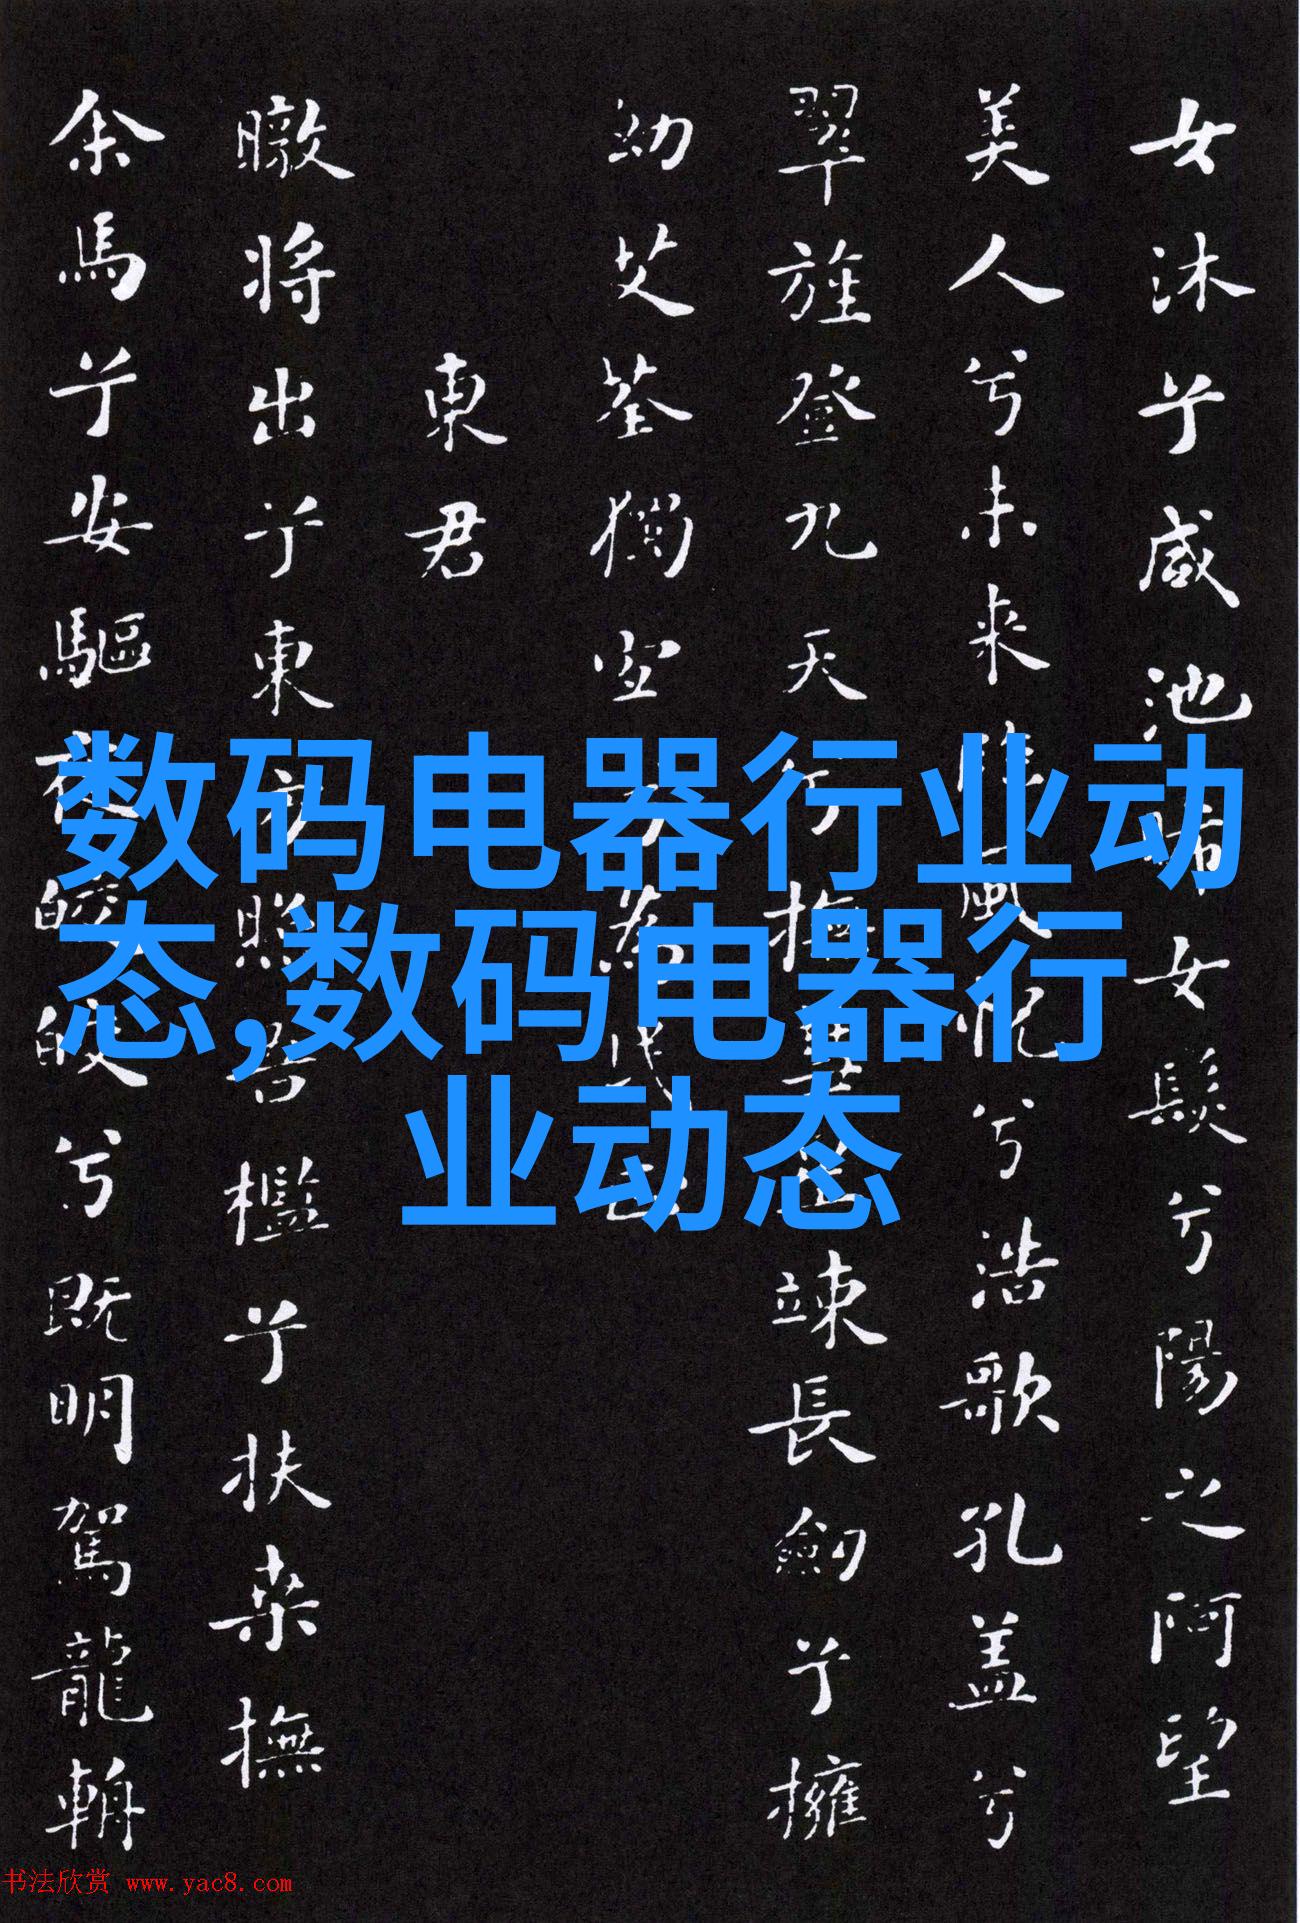 女沐兮咸池晞女髮兮陽之阿望
美人兮未来臨風怳兮浩歌孔盖兮
翠旌登九天兮撫彗星竦長劍兮擁
幼艾荃獨宜兮
東君
暾將出兮東方照吾檻兮扶桑撫
余馬兮安驅夜皎皎兮既明駕龍輈
数码电器行业动
态,数码电器行
业动态
书法欣赏 www.yac8.com